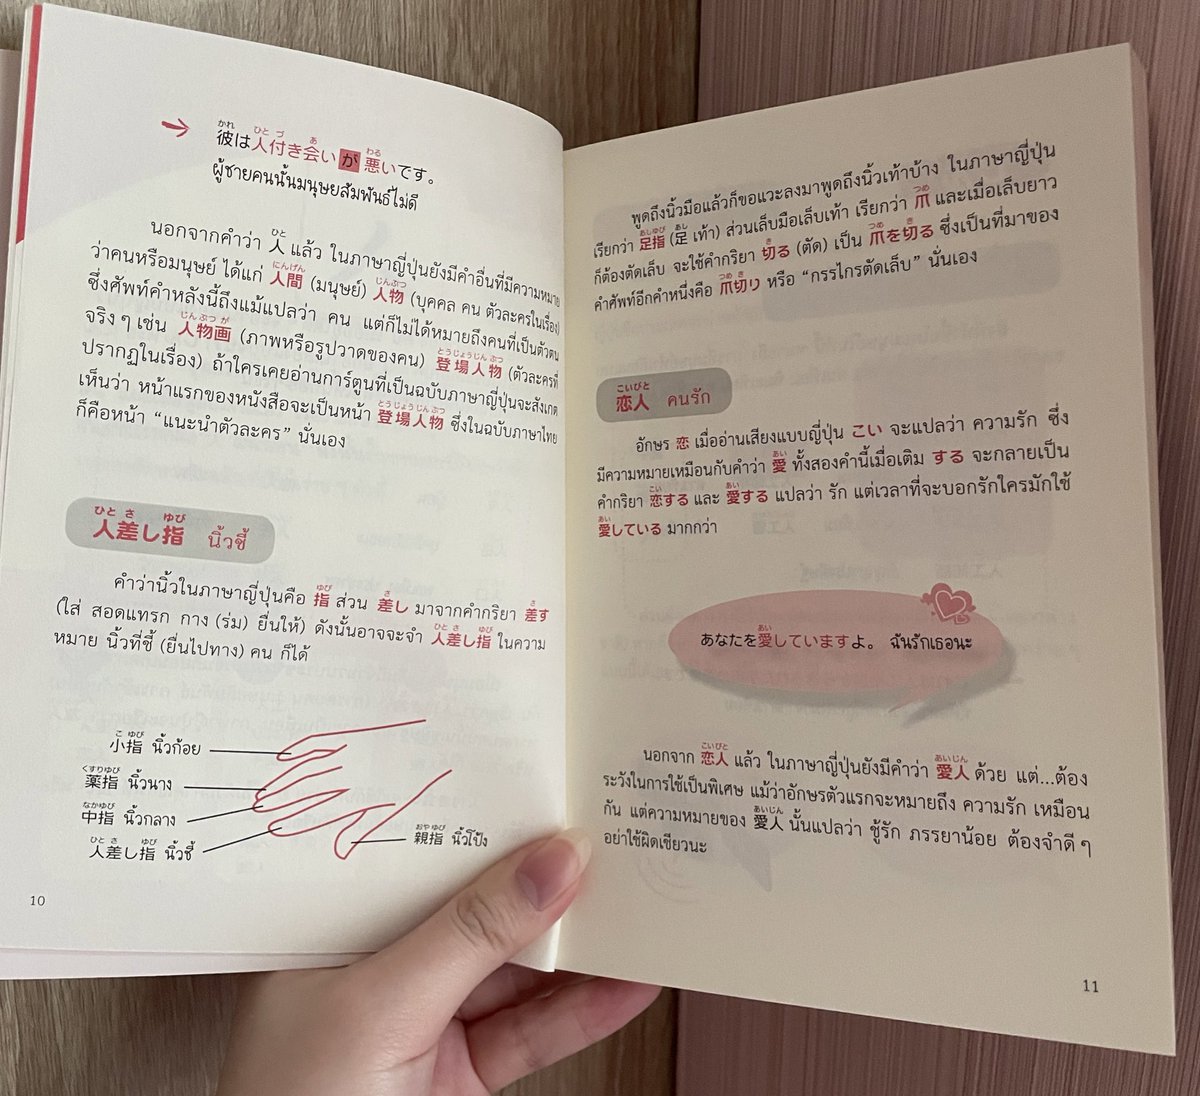 かれ ひと づ あ わる
彼は人付き会いが悪いです。
ผู้ชายคนนั้นมนุษยสัมพันธ์ไม่ดี
ひと
นอกจากคำว่า 人 แล้ว ในภาษาญี่ปุ่นยังมีคำอื่นที่มีความหมาย
にんげん じんぶつ
ว่าคนหรือมนุษย์ ได้แก่ 人間 (มนุษย์) 人物 (บุคคล คน ตัวละครในเรื่อง)
ซึ่งศัพท์คำหลังนี้ถึงแม้แปลว่า คน แต่ก็ไม่ได้หมายถึงคนที่เป็นตัวตน
じんぶつ が とうじょうじん ぶつ
จริง ๆ เช่น 人物画 (ภาพหรือรูปวาดของคน) 登場人物 (ตัวละครที่
ปรากฏในเรื่อง) ถ้าใครเคยอ่านการ์ตูนที่เป็นฉบับภาษาญี่ปุ่นจะสังเกต
とうじょうじんぶつ
เห็นว่า หน้าแรกของหนังสือจะเป็นหน้า 登場人物 ซึ่งในฉบับภาษาไทย
ก็คือหน้า “แนะนำตัวละคร” นั่นเอง
ひと さ ゆび
人差し指 นิ้วชี้
ゆび さ さ
คำว่านิ้วในภาษาญี่ปุ่นคือ 指 ส่วน 差し มาจากคำกริยา 差す
ひと さ ゆび
(ใส่ สอดแทรก กาง (ร่ม) ยื่นให้) ดังนั้นอาจจะจำ 人差し指 ในความ
หมาย นิ้วที่ชี้ (ยื่นไปทาง) คน ก็ได้
こ ゆび
小指 นิ้วก้อย
くすりゆび
薬指 นิ้วนาง
なかゆび
中指 นิ้วกลาง
ひと さ ゆび
人差し指 นิ้วชี้
おや ゆび
親指 นิ้วโป้ง
10
พูดถึงนิ้วมือแล้วก็ขอแวะลงมาพูดถึงนิ้วเท้าบ้าง ในภาษาญี่ปุ่น
あしゆび あし つめ
เรียกว่า 足指 (足 เท้า) ส่วนเล็บมือเล็บเท้า เรียกว่า 爪 และเมื่อเล็บยาว
き つめ き
ก็ต้องตัดเล็บ จะใช้คำกริยา 切る (ตัด) เป็น 爪を切る ซึ่งเป็นที่มาของ
つめ き
คำศัพท์อีกคำหนึ่งคือ 爪切り หรือ “กรรไกรตัดเล็บ” นั่นเอง
こいびと
恋人 คนรัก
อักษร 恋 เมื่ออ่านเสียงแบบญี่ปุ่น こい จะแปลว่า ความรัก ซึ่ง
あい
มีความหมายเหมือนกับคำว่า 愛 ทั้งสองคำนี้เมื่อเติม する จะกลายเป็น
こい あい
คำกริยา 恋する และ 愛する แปลว่า รัก แต่เวลาที่จะบอกรักใครมักใช้
あい
愛している มากกว่า
あい
あなたを愛していますよ。 ฉันรักเธอนะ
こいびと あいじん
นอกจาก 恋人 แล้ว ในภาษาญี่ปุ่นยังมีคำว่า 愛人 ด้วย แต่...ต้อง
ระวังในการใช้เป็นพิเศษ แม้ว่าอักษรตัวแรกจะหมายถึง ความรัก เหมือน
あいじん
กัน แต่ความหมายของ 愛人 นั้นแปลว่า ชู้รัก ภรรยาน้อย ต้องจำดี ๆ
อย่าใช้ผิดเชียวนะ
11